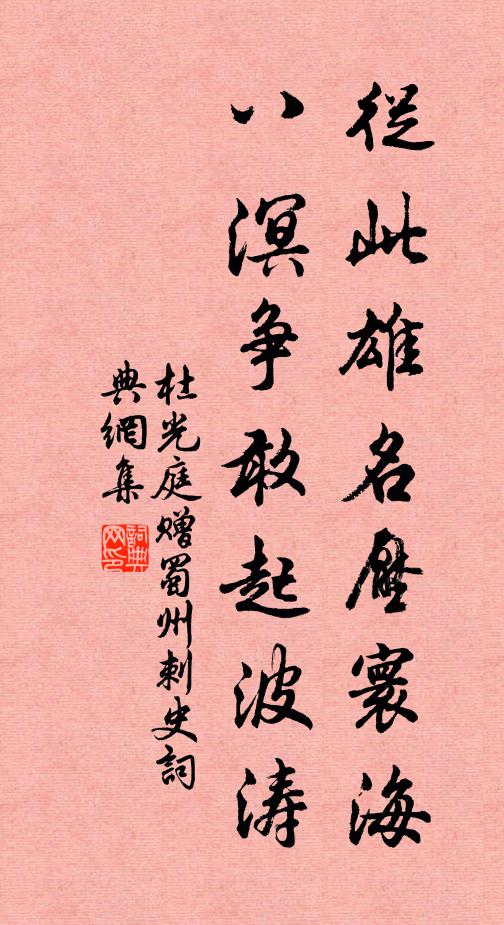 從此雄名壓寰海
八溟争敢起波涛
杜光庭赠蜀州刺史詞
典網集
詞典
网印